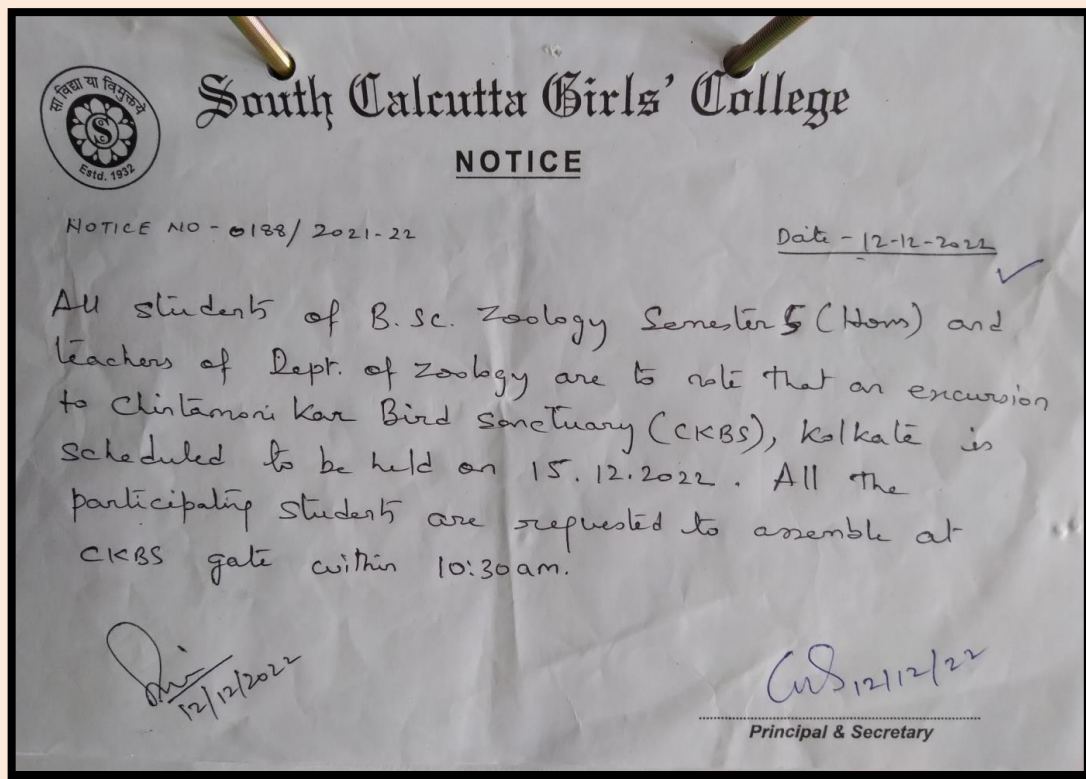 सा विद्या या विमुक्तये
S
Estd. 1932
South Calcutta Girls' College
NOTICE
NOTICE NO - 0188/2021-22
Date - 12-12-2022
All students of B.Sc. Zoology Semester 5 (Hons) and
teachers of Dept. of Zoology are to note that an excursion
to Chintamoni Kar Bird Sanctuary (CKBS), Kolkata is
scheduled to be held on 15.12.2022. All the
participating students are requested to assemble at
CKBS gate within 10:30am.
12/12/2022
12/12/22
Principal & Secretary